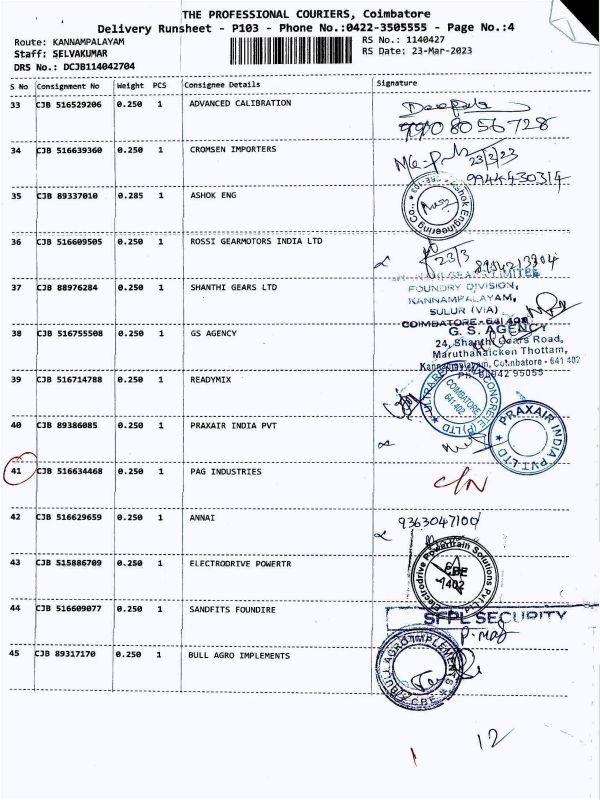 THE PROFESSIONAL COURIERS, Coimbatore
Delivery Runsheet - P103 - Phone No.:0422-3505555 - Page No.:4
Route: KANNAMPALAYAM
Staff: SELVAKUMAR
DRS No.: DCJB114042704
RS No.: 1140427
RS Date: 23-Mar-2023
S No Consignment No Weight PCS Consignee Details Signature
33 CJB 516529206 0.250 1 ADVANCED CALIBRATION
9908056728
34 CJB 516639360 0.250 1 CROMSEN IMPORTERS
23/3/23
9944430314
35 CJB 89337010 0.285 1 ASHOK ENG
Ashok Engineering Co.,
36 CJB 516609505 0.250 1 ROSSI GEARMOTORS INDIA LTD
23/3
37 CJB 88976284 0.250 1 SHANTHI GEARS LTD
FOUNDRY DIVISION,
KANNAMPALAYAM,
SULUR (VIA)
COIMBATORE - 641 402
38 CJB 516755508 0.250 1 GS AGENCY
G. S. AGENCY
24, Shanthi Gears Road,
Maruthanaicken Thottam,
Kannampalayam, Coimbatore - 641 402
39 CJB 516714788 0.250 1 READYMIX
COIMBATORE
641 402
40 CJB 89386085 0.250 1 PRAXAIR INDIA PVT
PRAXAIR INDIA PVT LTD
41 CJB 516634468 0.250 1 PAG INDUSTRIES
C/N
42 CJB 516629659 0.250 1 ANNAI
9363047100
43 CJB 515886709 0.250 1 ELECTRODRIVE POWERTR
Electrodrive Powertrain Solutions Pvt Ltd
CBE
44 CJB 516609077 0.250 1 SANDFITS FOUNDIRE
SFPL SECURITY
45 CJB 89317170 0.250 1 BULL AGRO IMPLEMENTS
BULL AGRO IMPLEMENTS
CBE.
12